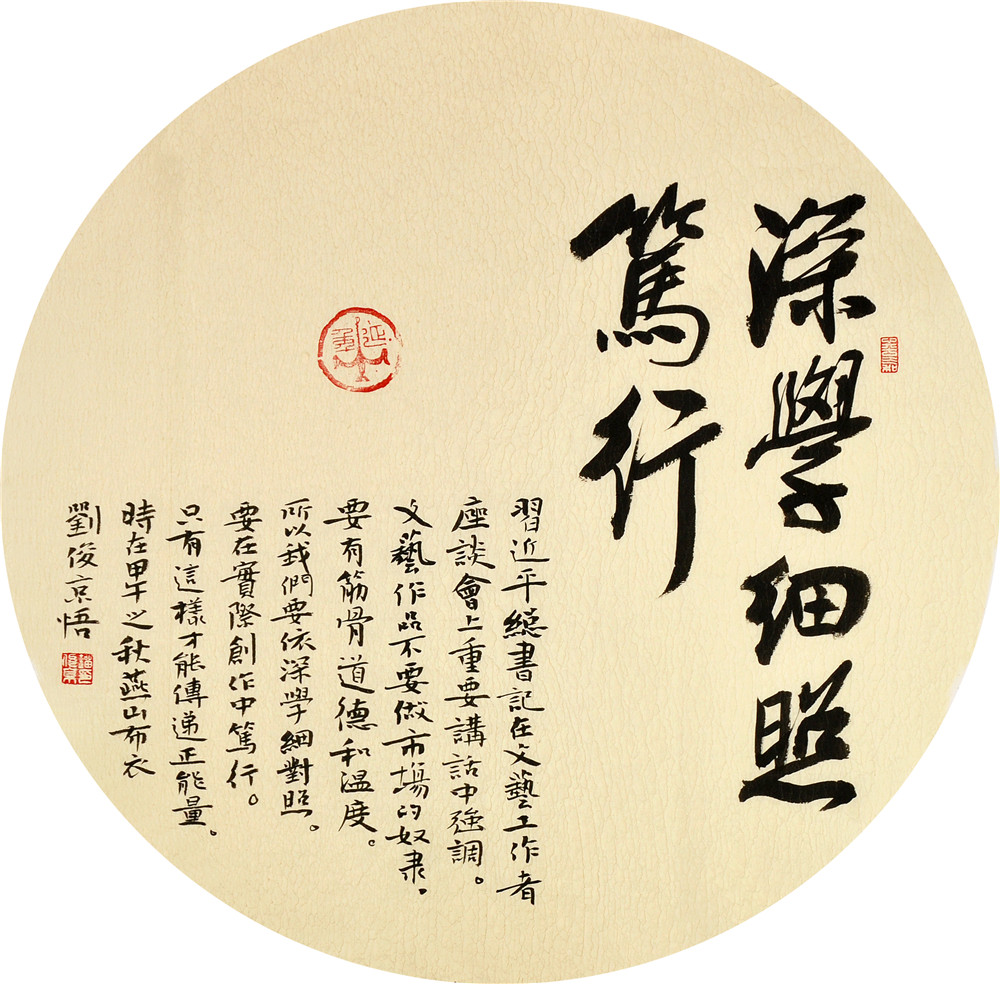 深學細照
篤行
習近平總書記在文藝工作者
座談會上重要講話中強調。
文藝作品不要做市場的奴隶.
要有筋骨道德和溫度。
所以我們要依深學細對照。
要在實際創作中篤行。
只有這樣才能傳递正能量。
時在甲午之秋燕山布衣
劉俊京悟